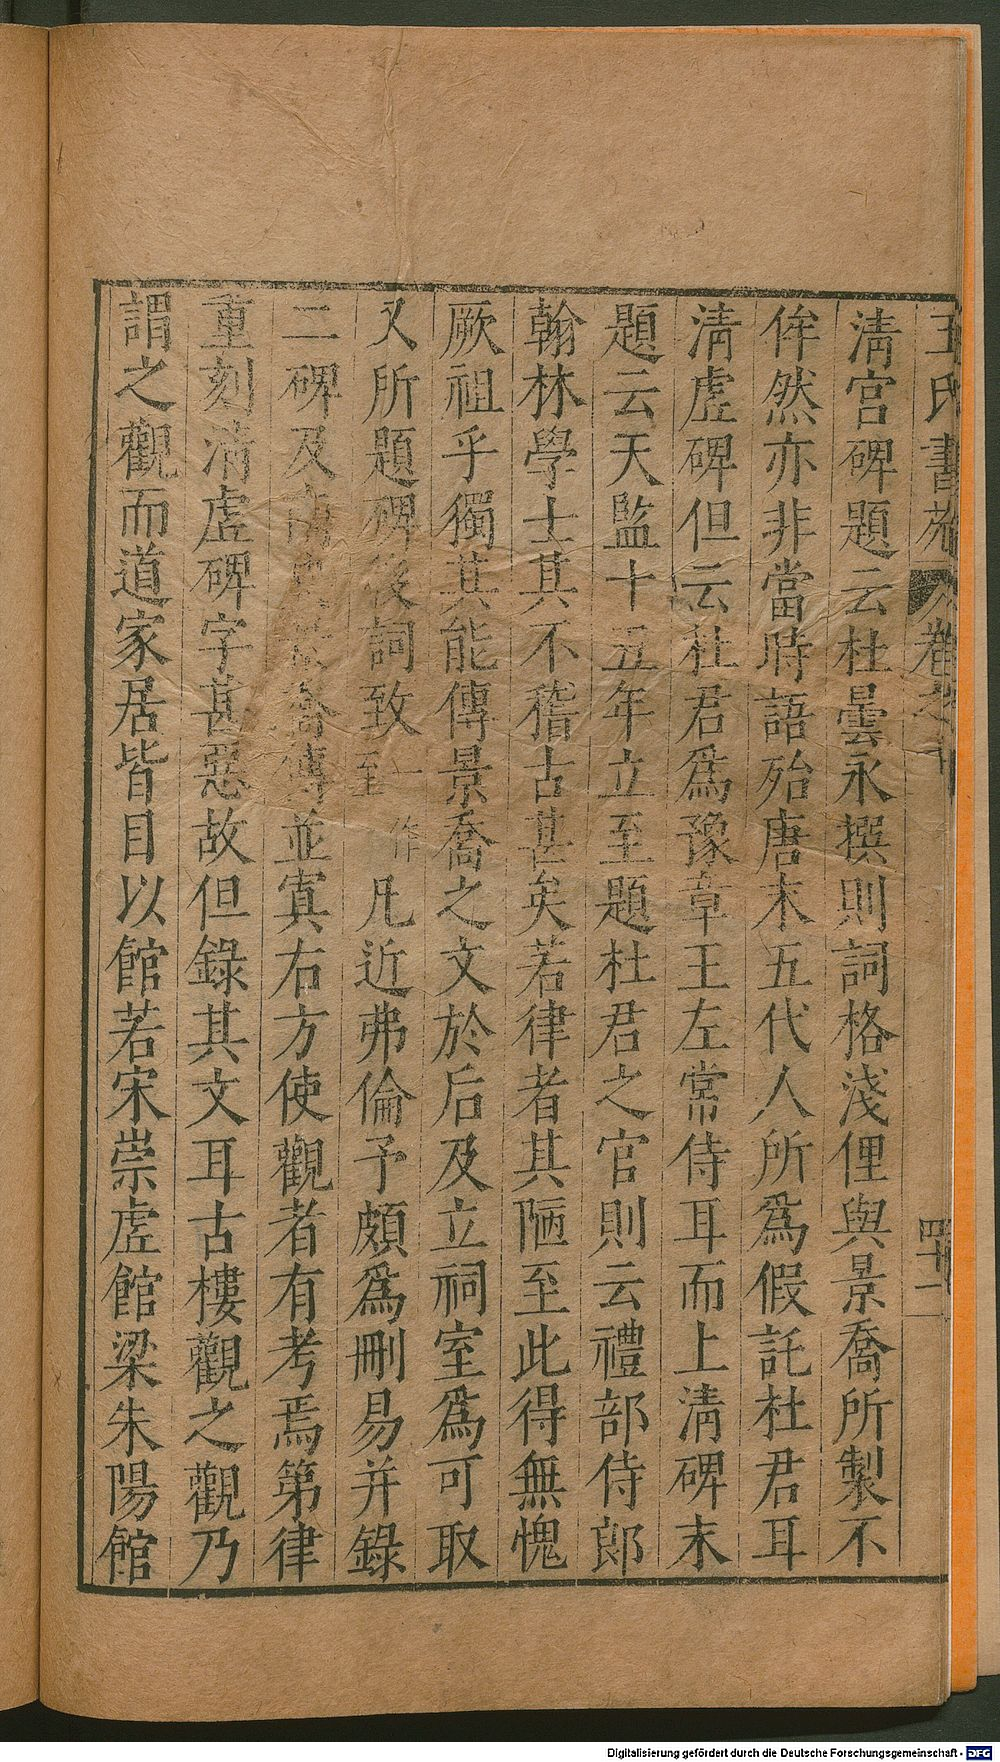 王氏書苑 卷之十 四十二
淸宮碑題云杜曇永撰則詞格淺俚與景喬所製不
侔然亦非當時語殆唐末五代人所爲假託杜君耳
淸虛碑但云杜君爲豫章王左常侍耳而上淸碑末
題云天監十五年立至題杜君之官則云禮部侍郎
翰林學士其不稽古甚矣若律者其陋至此得無愧
厥祖乎獨其能傳景喬之文於后及立祠室爲可取
又所題碑後詞致一作至凡近弗倫予頗爲刪易并錄
二碑及南史景喬傳並寘右方使觀者有考焉第律
重刻淸虛碑字甚惡故但錄其文耳古樓觀之觀乃
謂之觀而道家居皆目以館若宋崇虛館梁朱陽館
Digitalisierung gefördert durch die Deutsche Forschungsgemeinschaft - DFG